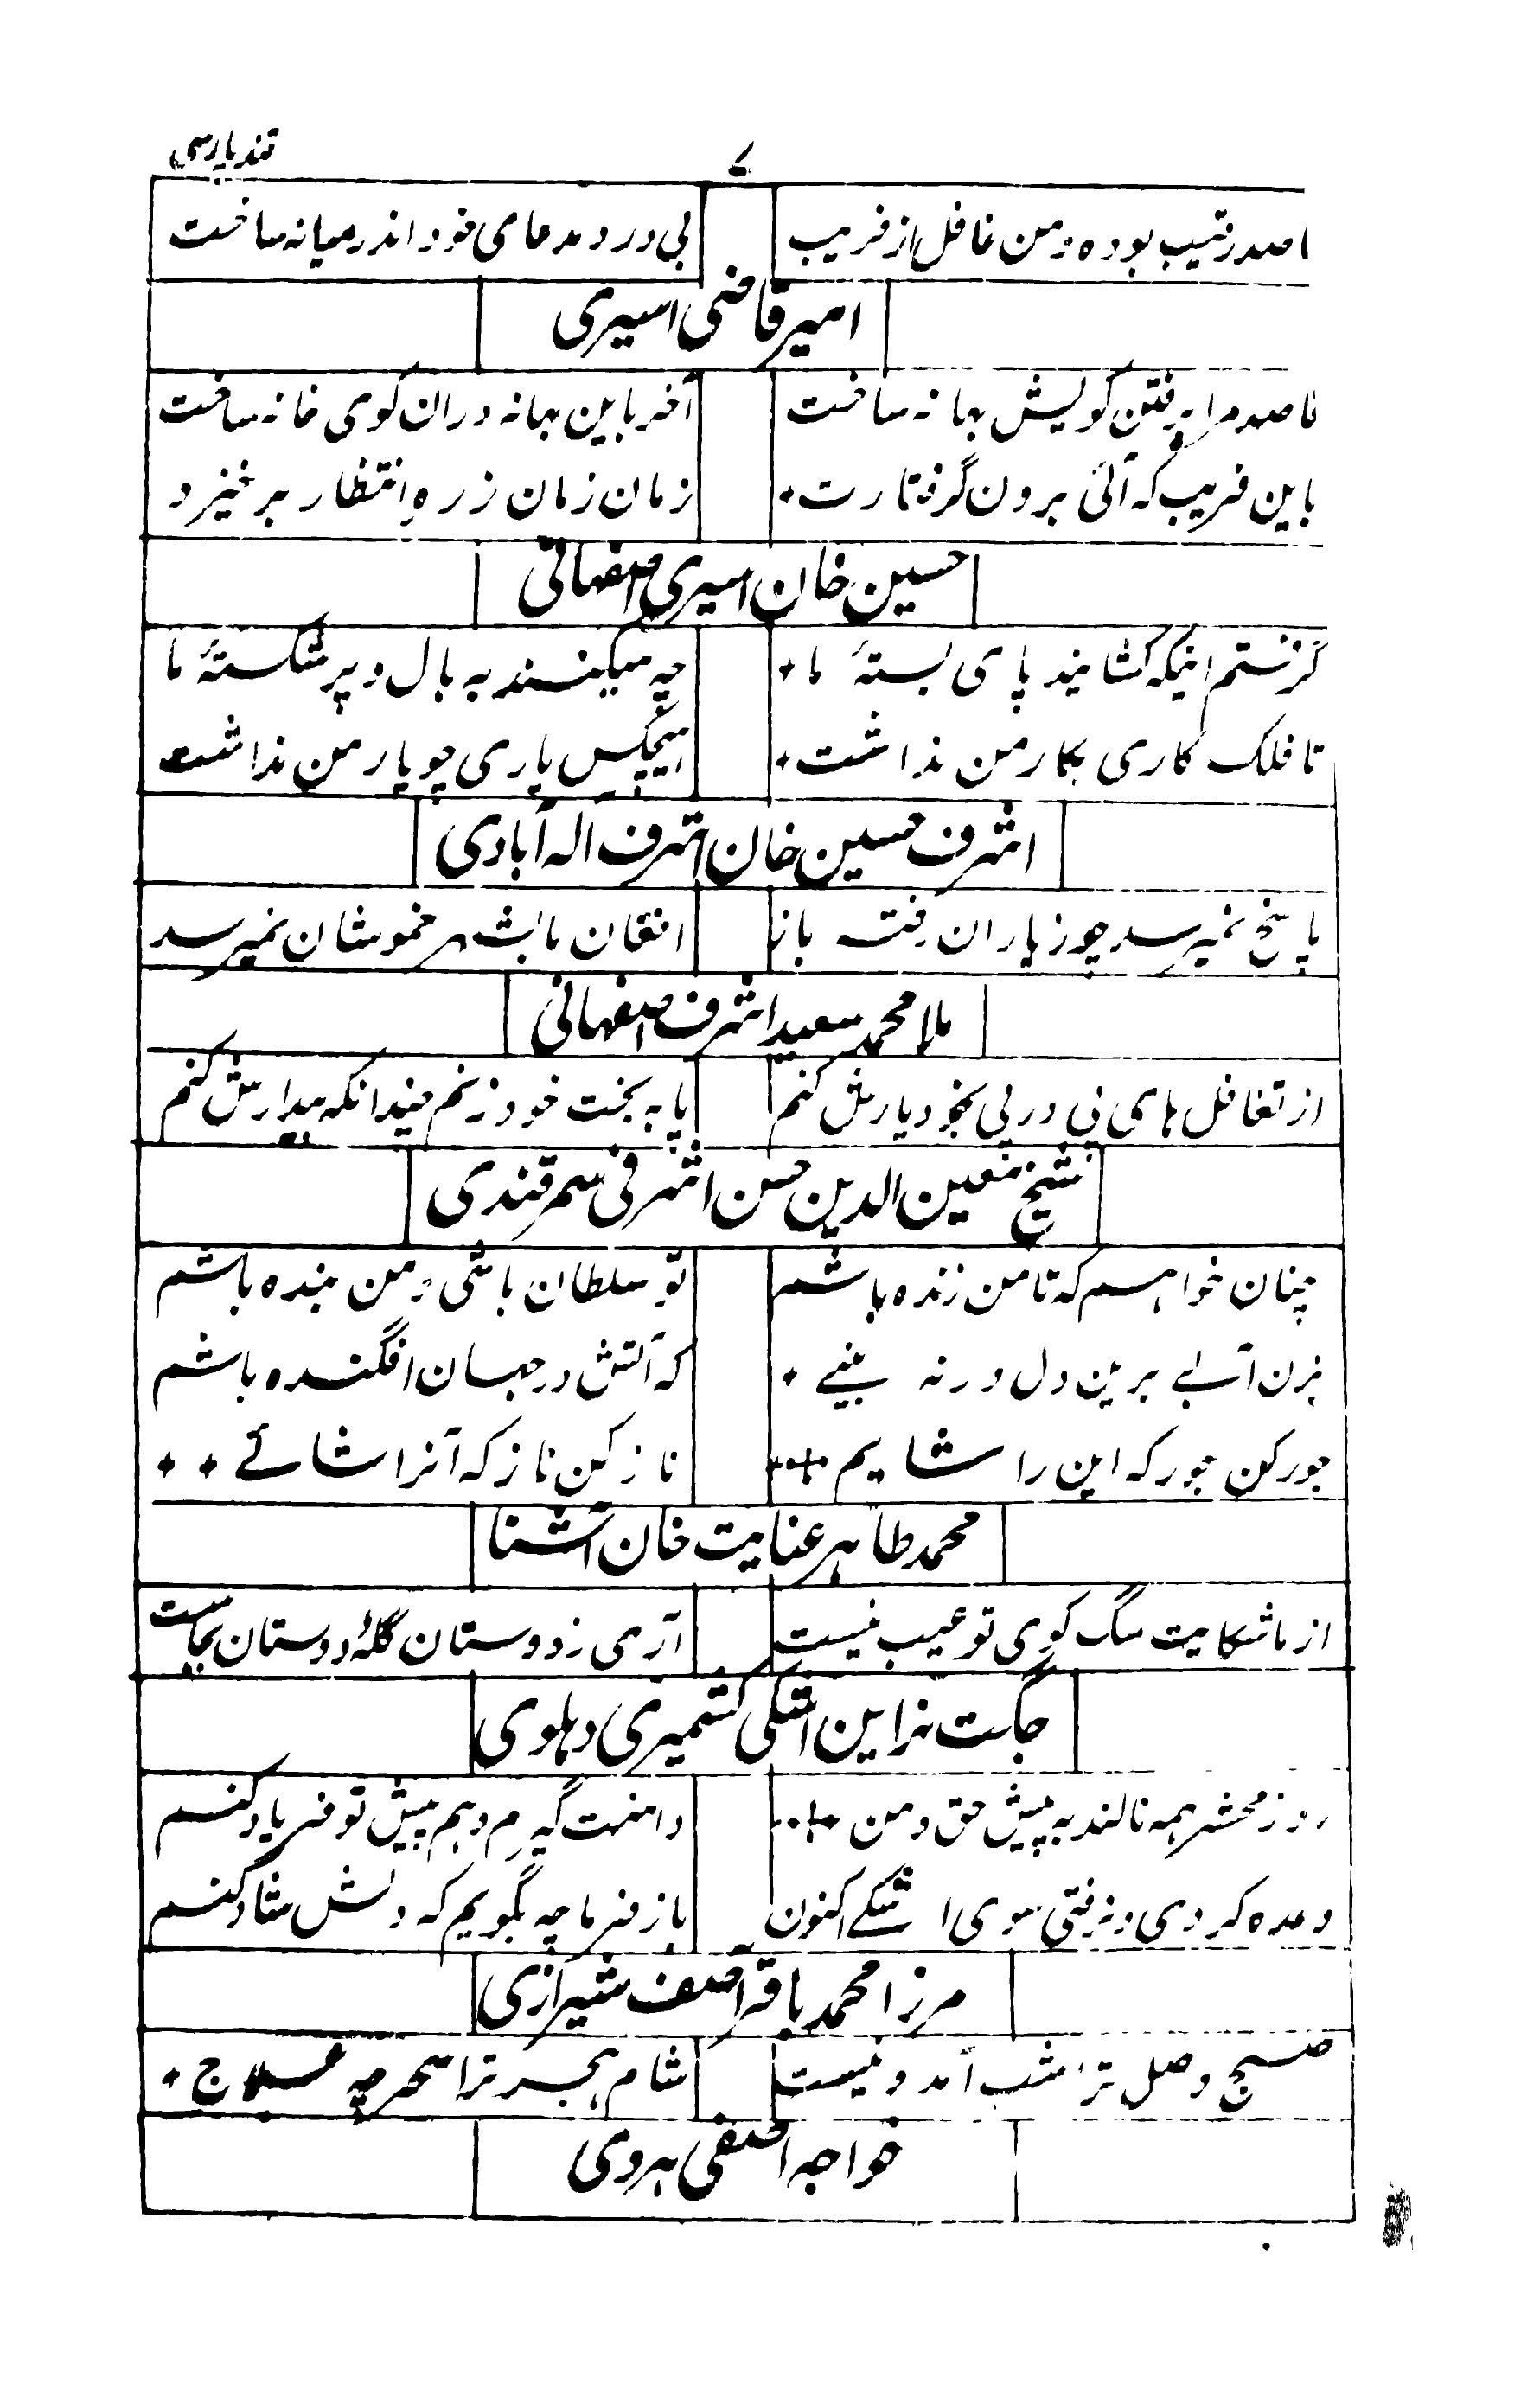 ۷ قند پارسی
اصد رقیب بوده و من غافل از فریب بی درد مدعای خود اندر میانه ساخت
امیر قاضی اسیری
قاصد مرا برفتن کویش بهانه ساخت آخر باین بهانه دران کوی خانه ساخت
باین فریب که آئی برون گرفتارت زمان زمان ز رهِ انتظار برخیزد
حسین خان اسیری اصفهانی
گرفتم اینکه کشایند پای بستهٔ ما چه میکنند به بال و پر شکستهٔ ما
تا فلک کاری بکار من نداشت هیچکس یاری چو یار من نداشت
اشرف حسین خان اشرف اله آبادی
پاسخ نمیرسد چو ز یاران رفته باز افغان ما بشهر خموشان نمیرسد
ملا محمد سعید اشرف اصفهانی
از تغافل های پی در پی بخود یارش کنم پا به بخت خود زنم چندانکه بیدارش کنم
شیخ معین الدین حسن اشرفی سمرقندی
چنان خواهم که تا من زنده باشم تو سلطان باشی و من بنده باشم
بزن آبے برین دل ورنه بینے که آتش در جهان افگنده باشم
جور کن جور که این را شایم ناز کن ناز که آنرا شائے
محمد طاهر عنایت خان آشنا
از ما شکایت سگ کوی تو عیب نیست آری ز دوستان گلهٔ دوستان بجاست
جگت نراین اشکی کشمیری دهلوی
روز محشر همه نالند به پیش حق و من دامنت گیرم و هم پیش تو فریاد کنم
وعده کردی و نرفتی سوی اشکے اکنون باز فرما چه بگویم که دلش شاد کنم
مرزا محمد باقر آصف شیرازی
صبح وصل ترا شب آمد و نیست شام هجر ترا سحر چه علاج
خواجه آصفی هروی